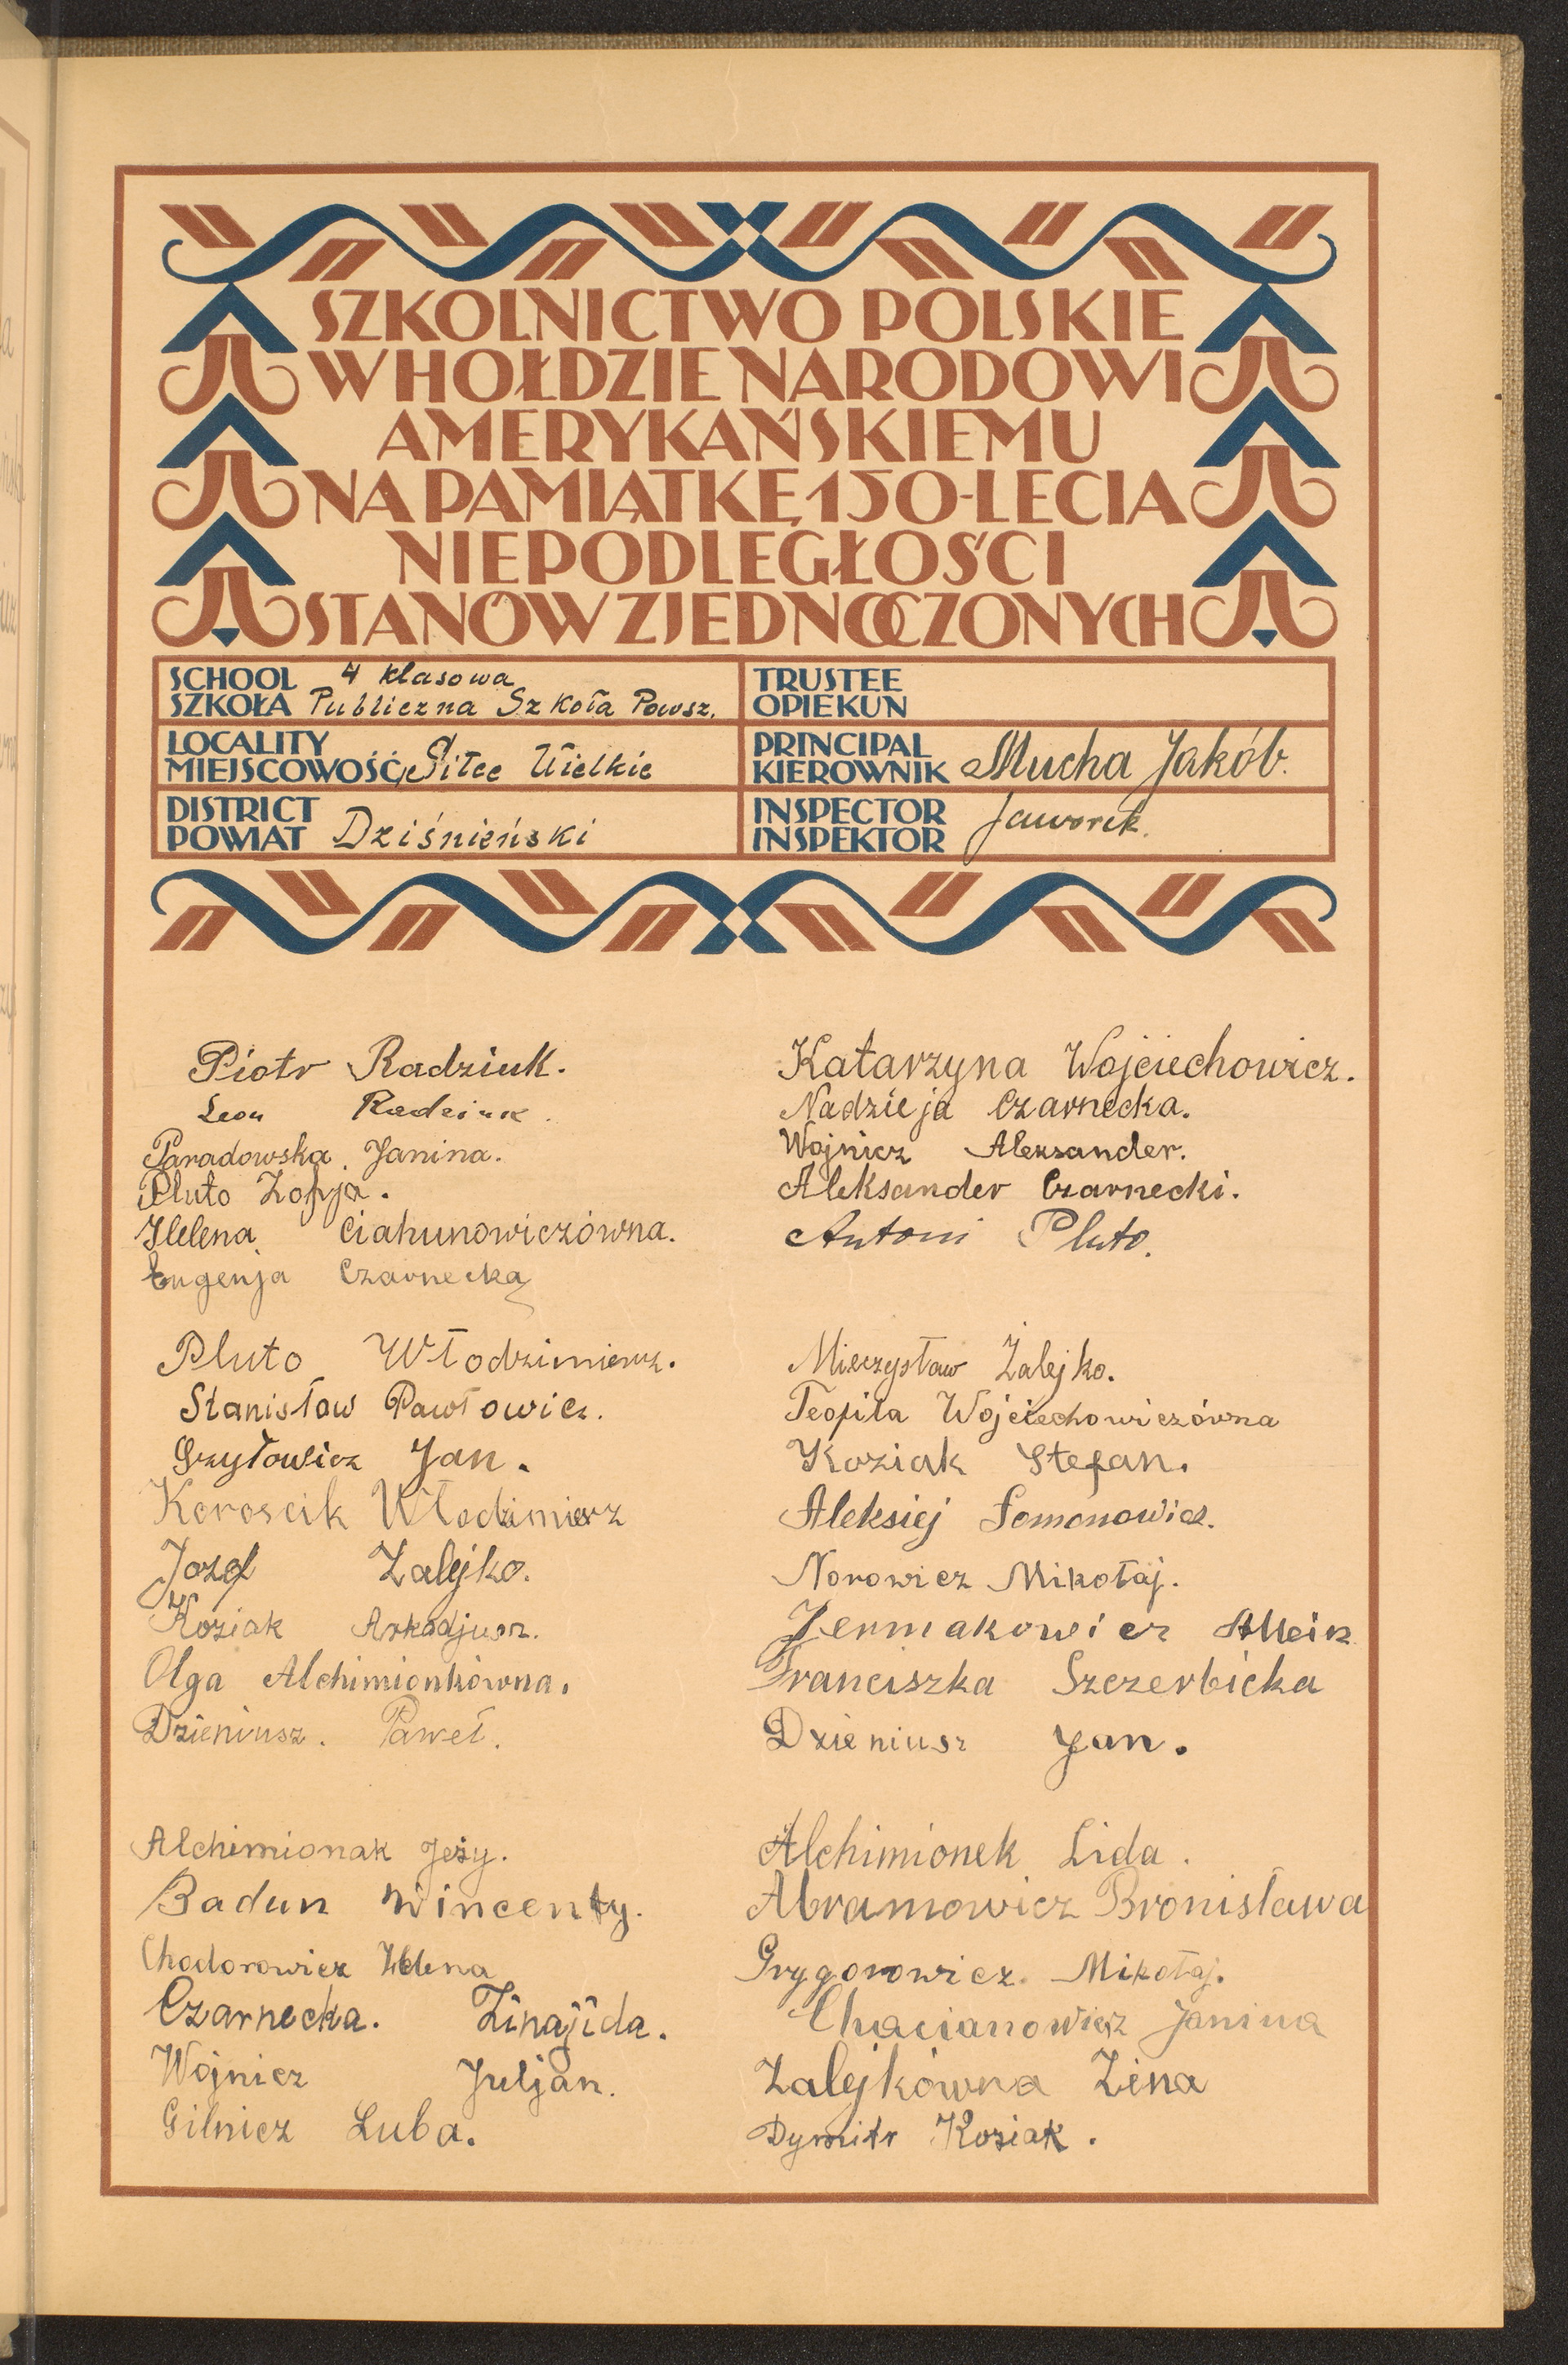 SZKOLNICTWO POLSKIE
W HOŁDZIE NARODOWI
AMERYKAŃSKIEMU
NA PAMIĄTKĘ 150-LECIA
NIEPODLEGŁOŚCI
STANÓW ZJEDNOCZONYCH
SCHOOL 4 klasowa
SZKOŁA Publiczna Szkoła Powsz.
TRUSTEE
OPIEKUN
LOCALITY
MIEJSCOWOŚĆ Sitce Wielkie
PRINCIPAL
KIEROWNIK Mucha Jakób.
DISTRICT
POWIAT Dziśnieński
INSPECTOR
INSPEKTOR Jaworek.
Piotr Radziuk.
Leon Radziuk.
Paradowska Janina.
Pluto Zofja.
Helena Ciahunowiczówna.
Eugenja Czarnecka
Katarzyna Wojciechowicz.
Nadzieja Czarnecka.
Wojnicz Aleksander.
Aleksander Czarnecki.
Antoni Pluto.
Pluto Włodzimierz.
Stanisław Pawłowicz.
Grzyłowicz Jan.
Koroscik Włodzimierz
Jozef Zalejko.
Koziak Arkadjusz.
Olga Alchimionkówna.
Dzieniusz. Paweł.
Mieczysław Żalejko.
Teofila Wojciechowiczówna
Koziak Stefan.
Aleksiej Somonowicz.
Norowicz Mikołaj.
Jermakowicz
Franciszka Szczerbicka
Dzieniusz Jan.
Alchimionak Jeży.
Badun Wincenty.
Chodorowicz Helena
Czarnecka. Zinajida.
Wojnicz Juljan.
Gilnicz Luba.
Alchimionek Lida.
Abramowicz Bronisława
Grygorowicz. Mikołaj.
Chacianowicz Janina
Zalejkówna Zina
Dymitr Koziak.